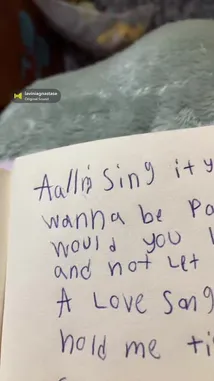 laviniagnastase
Original Sound
Sing it y
wanna be Pa
would you
and not Let
A Love Song
hold me ti